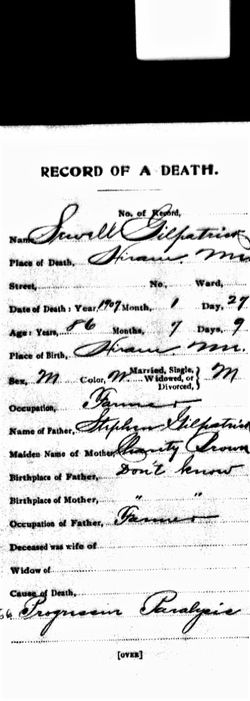 RECORD OF A DEATH.
No. of Record,
Name Sewell Gilpatrick
Place of Death, Hiram, Me
Street, No., Ward,
Date of Death: Year, 1907 Month, 1 Day, 27
Age: Years, 86 Months, 7 Days, 9
Place of Birth, Hiram Me.
Sex, M Color, W Married, Single, Widowed, or Divorced, } M
Occupation, Farmer
Name of Father, Stephen Gilpatrick
Maiden Name of Mother, Charity Brown
Birthplace of Father, Don't know
Birthplace of Mother, " "
Occupation of Father, Farmer
Deceased was wife of
Widow of
Cause of Death,
Progressive Paralysis
[OVER]